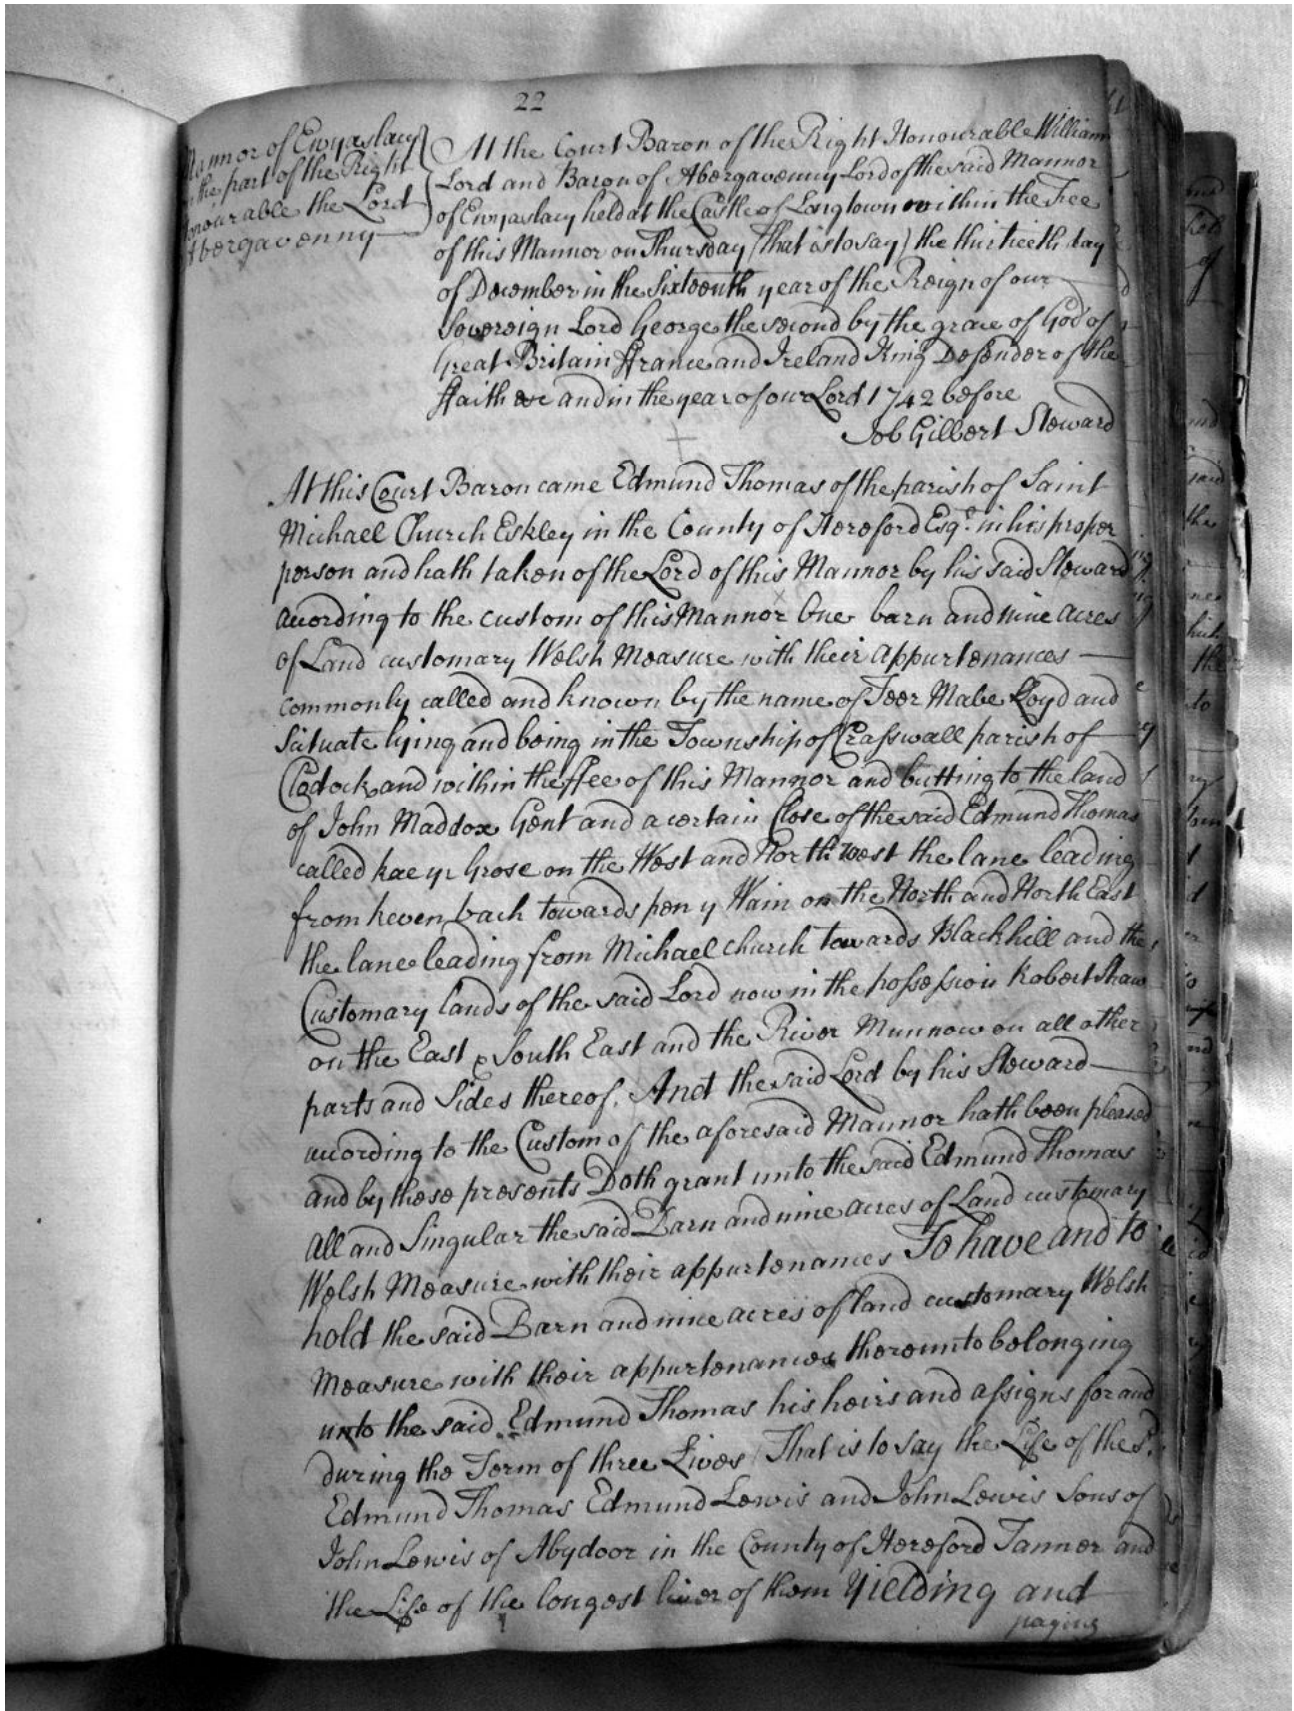 22
Mannor of Ewyaslacy
the part of the Right
Honourable the Lord
Abergavenny
At the Court Baron of the Right Honourable William
Lord and Baron of Abergavenny Lord of the said Mannor
of Ewyaslacy held at the Castle of Longtown within the Fee
of this Mannor on Thursday (That is to say) the thirtieth day
of December in the Sixteenth year of the Reign of our
Sovereign Lord George the second by the grace of God of
Great Britain ffrance and Ireland King Defender of the
ffaith &c and in the year of our Lord 1742 before
Job Gilbert Steward
At this Court Baron came Edmund Thomas of the parish of Saint
Michael Church Eskley in the County of Hereford Esqr. in his proper
person and hath taken of the Lord of this Mannor by his said Steward
according to the custom of this Mannor One barn and nine acres
of Land customary Welsh Measure with their appurtenances
commonly called and known by the name of Teer Mabe Lloyd and
Scituate lying and being in the Township of Crasswall parish of
Clodock and within the ffee of this Mannor and butting to the land
of John Maddox Gent and a certain Close of the said Edmund Thomas
called kae yr Grose on the West and North west the lane leading
from keven bach towards pen y Wain on the North and North East
the lane leading from Michael church towards Blackhill and the
Customary lands of the said Lord now in the possession Robert Shaw
on the East & South East and the River Munnow on all other
parts and Sides thereof. And the said Lord by his Steward
according to the Custom of the aforesaid Mannor hath been pleased
and by these presents Doth grant unto the said Edmund Thomas
all and Singular the said Barn and nine acres of Land customary
Welsh Measure with their appurtenances To have and to
hold the said Barn and nine acres of land customary Welsh
Measure with their appurtenances thereunto belonging
unto the said Edmund Thomas his heirs and assigns for and
during the Term of three Lives (That is to say the Life of the sd.
Edmund Thomas Edmund Lewis and John Lewis Sons of
John Lewis of Abydoor in the County of Hereford Tanner and
the Life of the longest liver of them Yielding and
paying